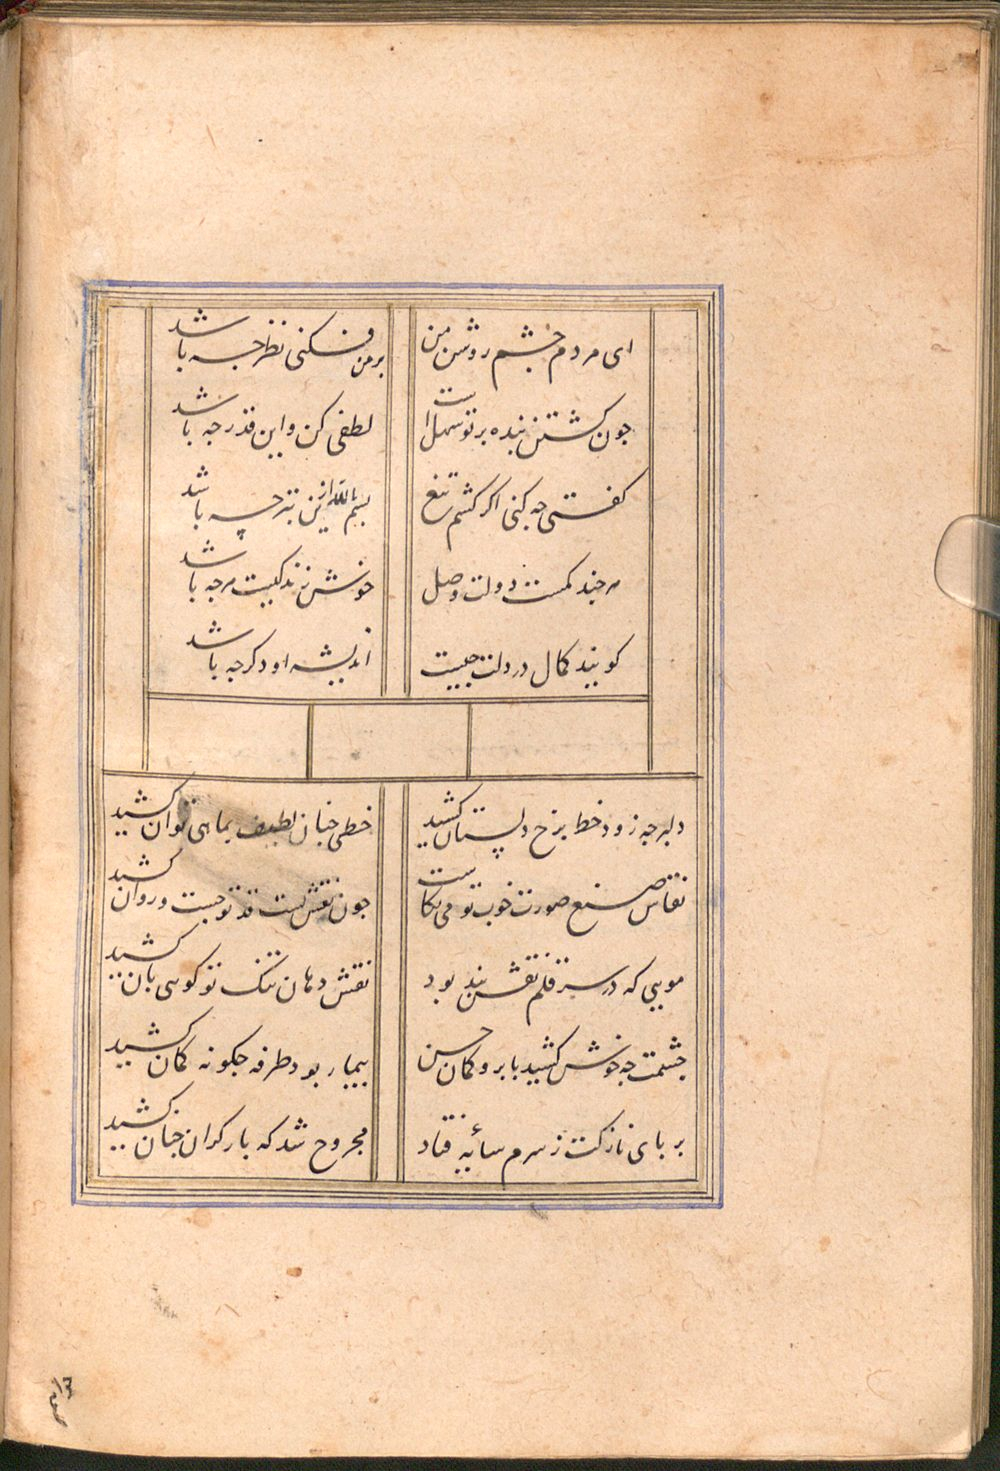 ای مردم چشم روشن من برمن فکنی نظر چه باشد
چون کشتن بنده بر تو سهل است لطفی کن و این قدر چه باشد
کفتی چه کنی اکر کشم تیغ بسم الله ازین بتر چه باشد
هرچند کمست دولت وصل خوش زندکییست هرچه باشد
کویند کمال در دلت چیست اندیشه او دکر چه باشد
دلبر چه زود خط برخ دلستان کشید خطی چنان لطیف بماهی توان کشید
نقاش صنع صورت خوب تو می نکاست چون نقش بست قد تو چست و روان کشید
مویی که در سر قلم نقش بند بود نقش دهان تنک تو کویی بان کشید
چشمت چه خوش کشید بابرو کمان حسن بیمار بود طرفه چکونه کمان کشید
بر پای نازکت ز سرم سائیه فتاد مجروح شد که بار کران چنان کشید